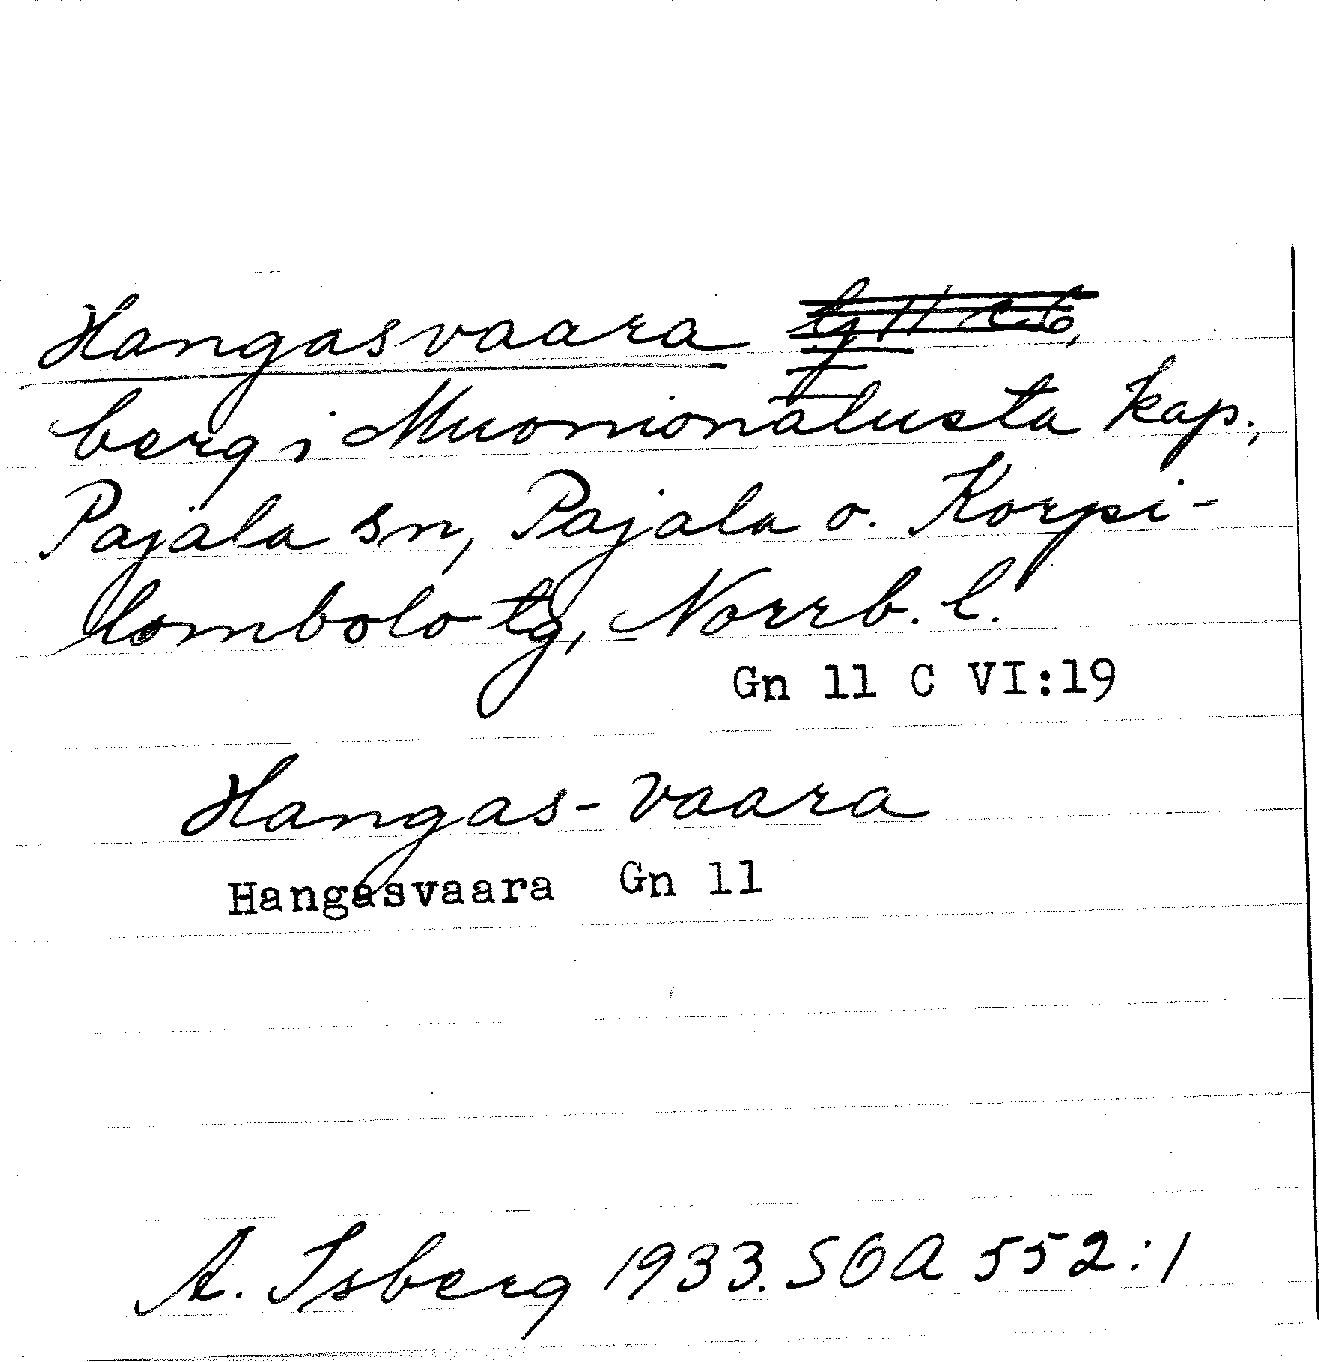 Hangasvaara
berg i Muonionalusta kap.,
Pajala sn, Pajala o. Korpi-
lombolo tg, Norrb. l.
Gn 11 C VI:19
Hangas-vaara
Hangasvaara Gn 11
A. Isberg 1933. SOA 552:1